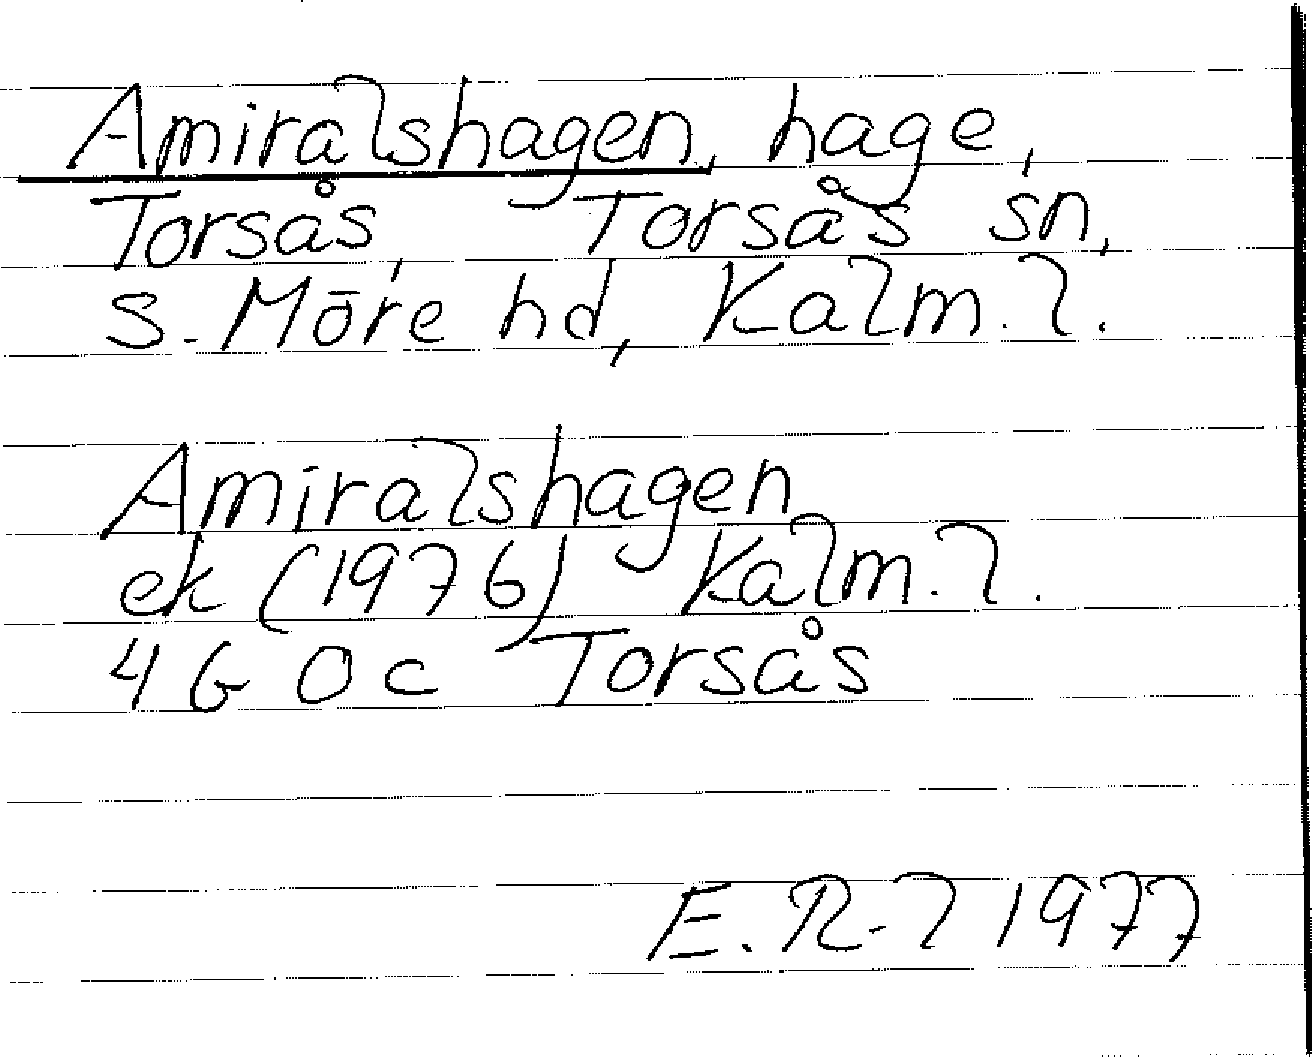 Amiralshagen, hage,
Torsås, Torsås sn,
S. Möre hd, Kalm. l.
Amiralshagen
ek (1976) Kalm. l.
4 G 0 c Torsås
E. R-l 1977